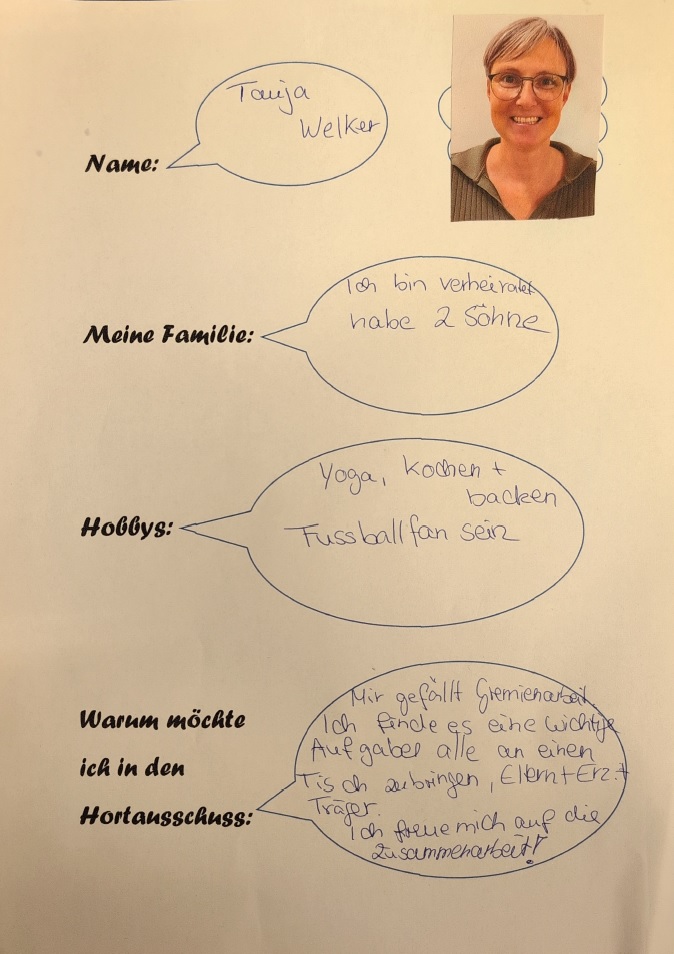 Name:
Tanja
Welker
Meine Familie:
Ich bin verheiratet
habe 2 Söhne
Hobbys:
Yoga, Kochen +
backen
Fussballfan sein
Warum möchte
ich in den
Hortausschuss:
Mir gefällt Gremienarbeit.
Ich finde es eine wichtige
Aufgabe alle an einen
Tisch zubringen, Eltern + Erz. +
Träger.
Ich freue mich auf die
Zusammenarbeit!